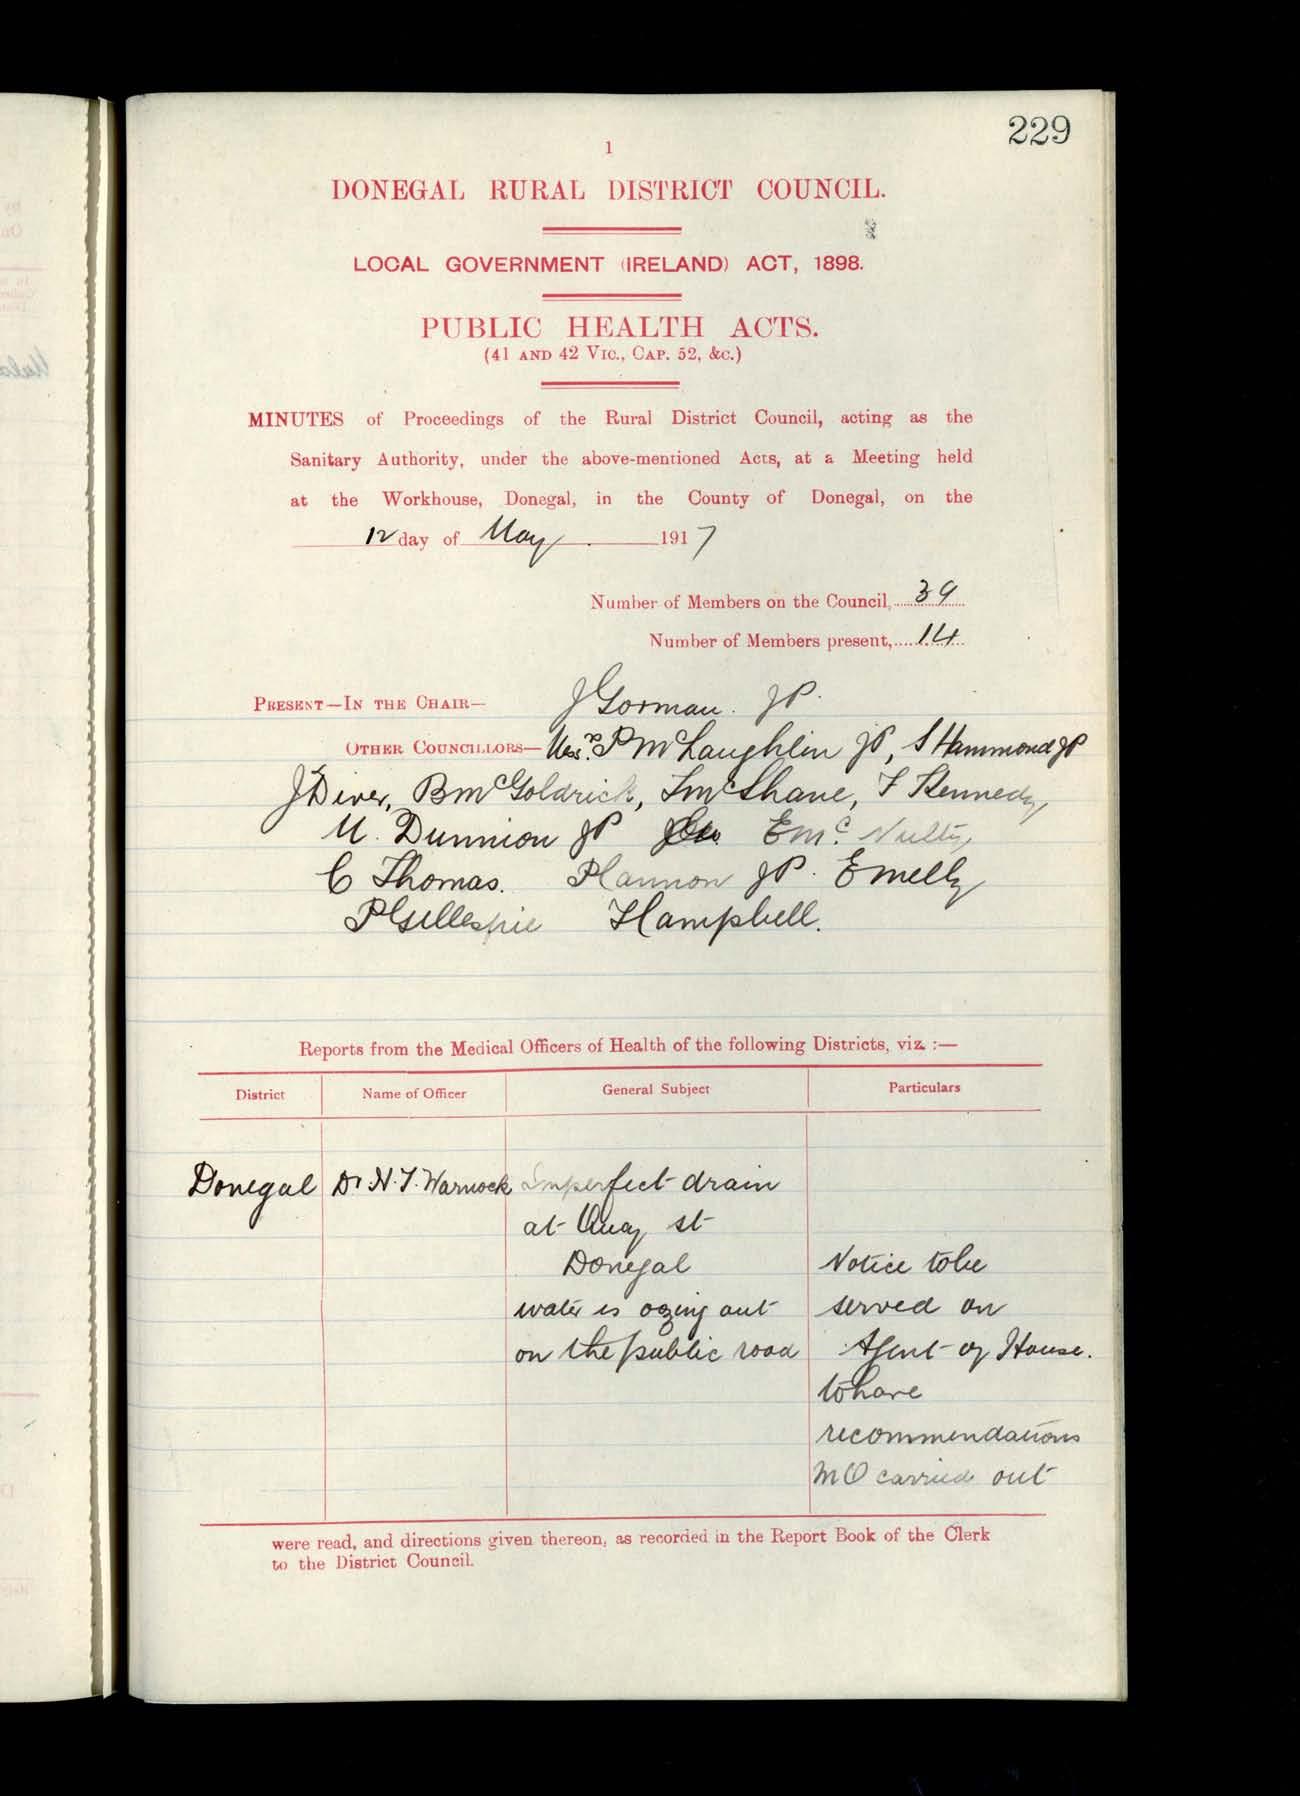 229
1
DONEGAL RURAL DISTRICT COUNCIL.
LOCAL GOVERNMENT (IRELAND) ACT, 1898.
PUBLIC HEALTH ACTS.
(41 AND 42 VIC., CAP. 52, &C.)
MINUTES of Proceedings of the Rural District Council, acting as the
Sanitary Authority, under the above-mentioned Acts, at a Meeting held
at the Workhouse, Donegal, in the County of Donegal, on the
12 day of May 1917
Number of Members on the Council, 39
Number of Members present, 14
PRESENT—IN THE CHAIR— J Gorman. JP.
OTHER COUNCILLORS— Messrs P McLaughlin JP, S Hammond JP
J Diver, B McGoldrick, T McShane, F Kennedy
M. Dunnion JP E Mc Nulty
C Thomas. P Cannon JP. E Melly
P Gillespie T Campbell.
Reports from the Medical Officers of Health of the following Districts, viz. :—
District Name of Officer General Subject Particulars
Donegal Dr N. T. Warnock Imperfect drain
at Quay st
Donegal Notice to be
water is oozing out served on
on the public road Agent of House.
to have
recommendations
MO carried out
were read, and directions given thereon, as recorded in the Report Book of the Clerk
to the District Council.